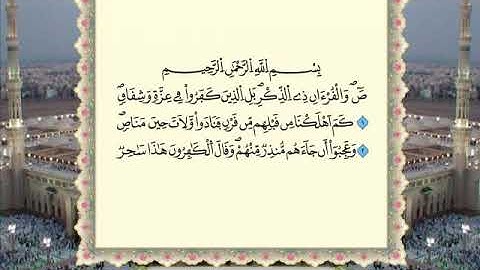 بِسْمِ اِ۬للَّهِ اِ۬لرَّحْمَٰنِ اِ۬لرَّحِيمِ
صَٓۖ وَالْقُرْءَانِ ذِے اِ۬لذِّكْرِۖ بَلِ اِ۬لذِينَ كَفَرُواْ فِے عِزَّةٖ وَشِقَاقٖۖ
١ كَمَ اَهْلَكْنَا مِن قَبْلِهِم مِّن قَرْنٖ فَنَادَواْ وَّلَاتَ حِينَ مَنَاصٖۖ
٢ وَعَجِبُوٓاْ أَن جَآءَهُم مُّنذِرٞ مِّنْهُمْۖ وَقَالَ اَ۬لْكَٰفِرُونَ هَٰذَا سَٰحِرٞ